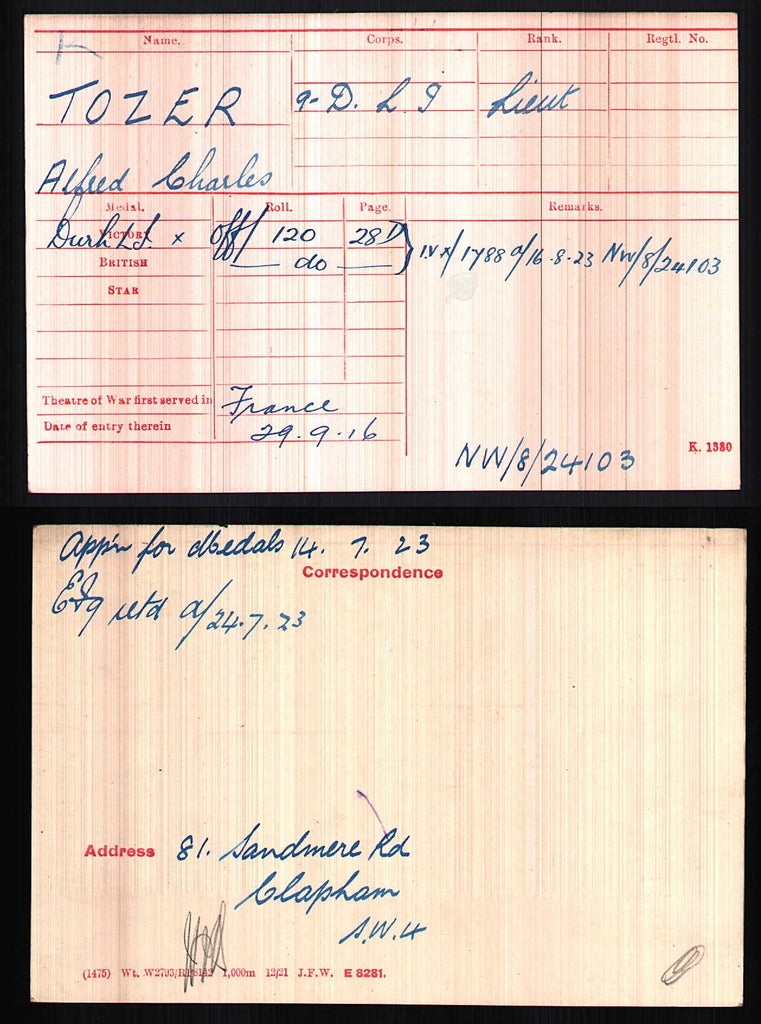 Name. Corps. Rank. Regtl. No.
TOZER 9-D. L I Lieut
Alfred Charles
Medal. Roll. Page. Remarks.
VICTORY Durh L.I. x Off/ 120 28D } I.V.X/1788 d/16.8.23 NW/8/24103
BRITISH — do —
STAR
Theatre of War first served in France
Date of entry therein 29.9.16
NW/8/24103 K. 1380
App'n for Medals 14. 7. 23
Correspondence
retd d/24.7.23
Address 81. Sandmere Rd
Clapham
S.W.4
(1475) Wt. 1,000m 12/21 J.F.W. E 8281.